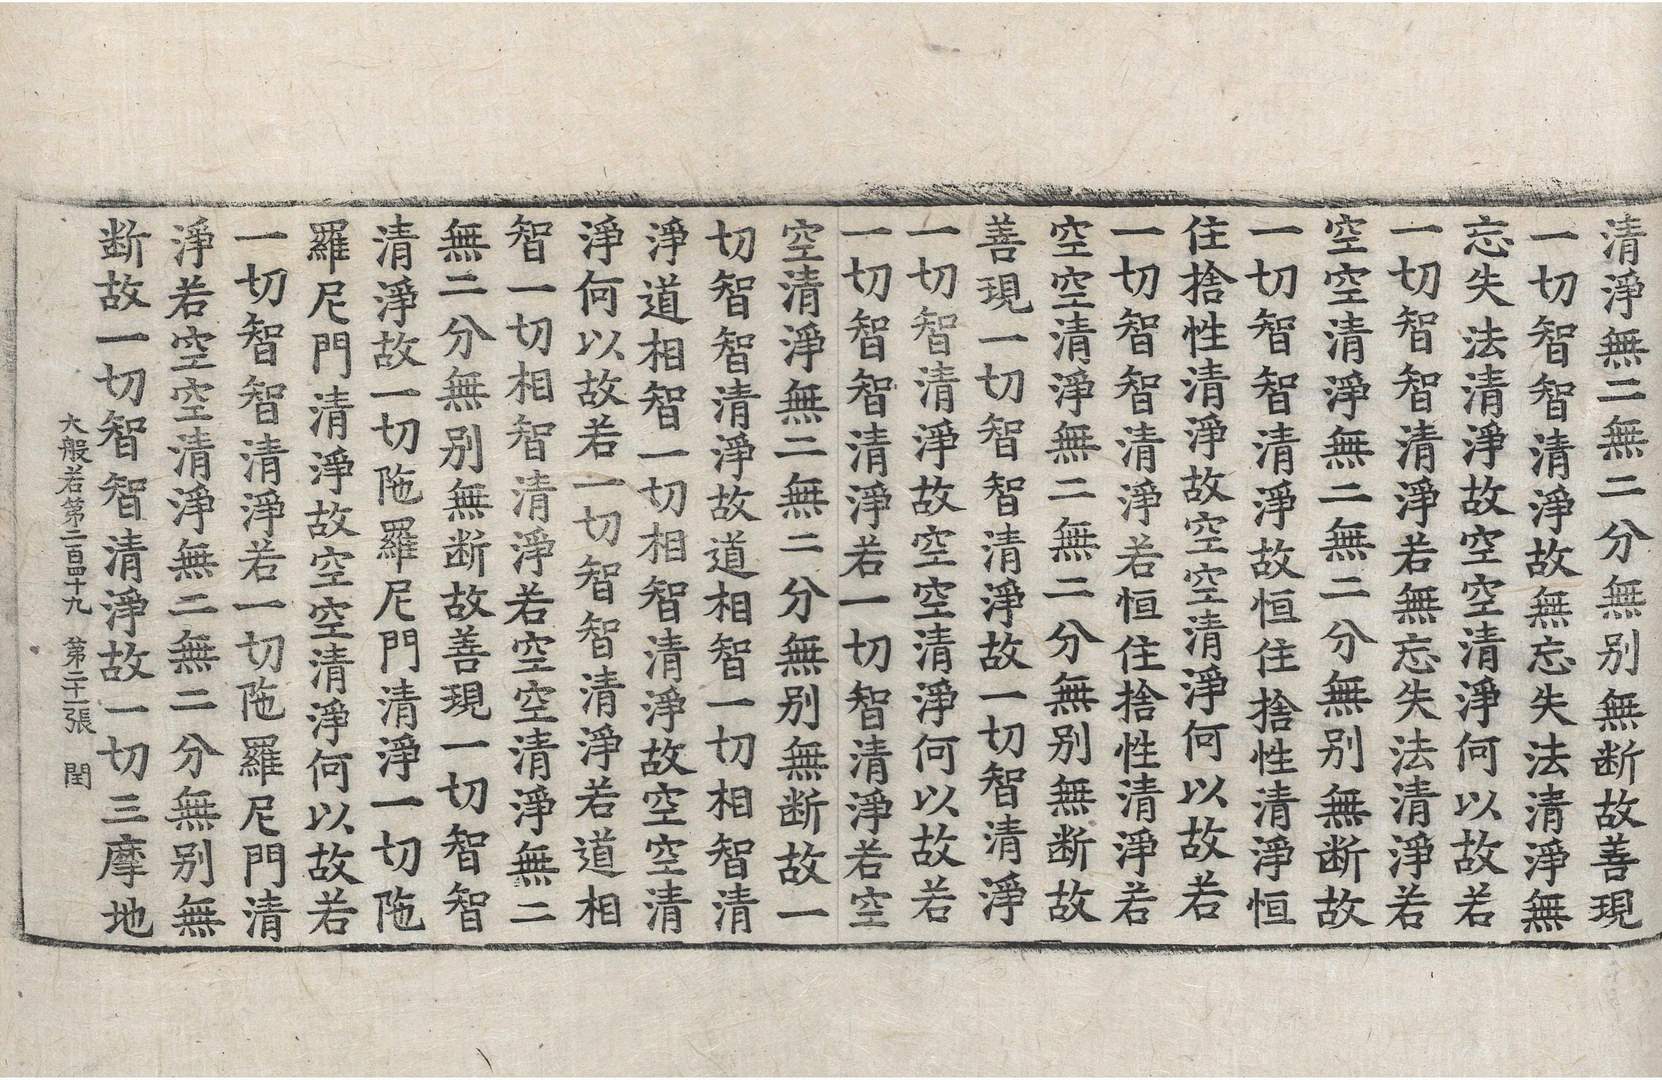 清淨無二無二分無别無断故善現
一切智智清淨故無忘失法清淨無
忘失法清淨故空空清淨何以故若
一切智智清淨若無忘失法清淨若
空空清淨無二無二分無别無断故
一切智智清淨故恒住捨性清淨恒
住捨性清淨故空空清淨何以故若
一切智智清淨若恒住捨性清淨若
空空清淨無二無二分無别無断故
善現一切智智清淨故一切智清淨
一切智清淨故空空清淨何以故若
一切智智清淨若一切智清淨若空
空清淨無二無二分無别無断故一
切智智清淨故道相智一切相智清
淨道相智一切相智清淨故空空清
淨何以故若一切智智清淨若道相
智一切相智清淨若空空清淨無二
無二分無别無断故善現一切智智
清淨故一切陁羅尼門清淨一切陁
羅尼門清淨故空空清淨何以故若
一切智智清淨若一切陁羅尼門清
淨若空空清淨無二無二分無别無
断故一切智智清淨故一切三摩地
大般若第二百四十九 第二十一張 閏